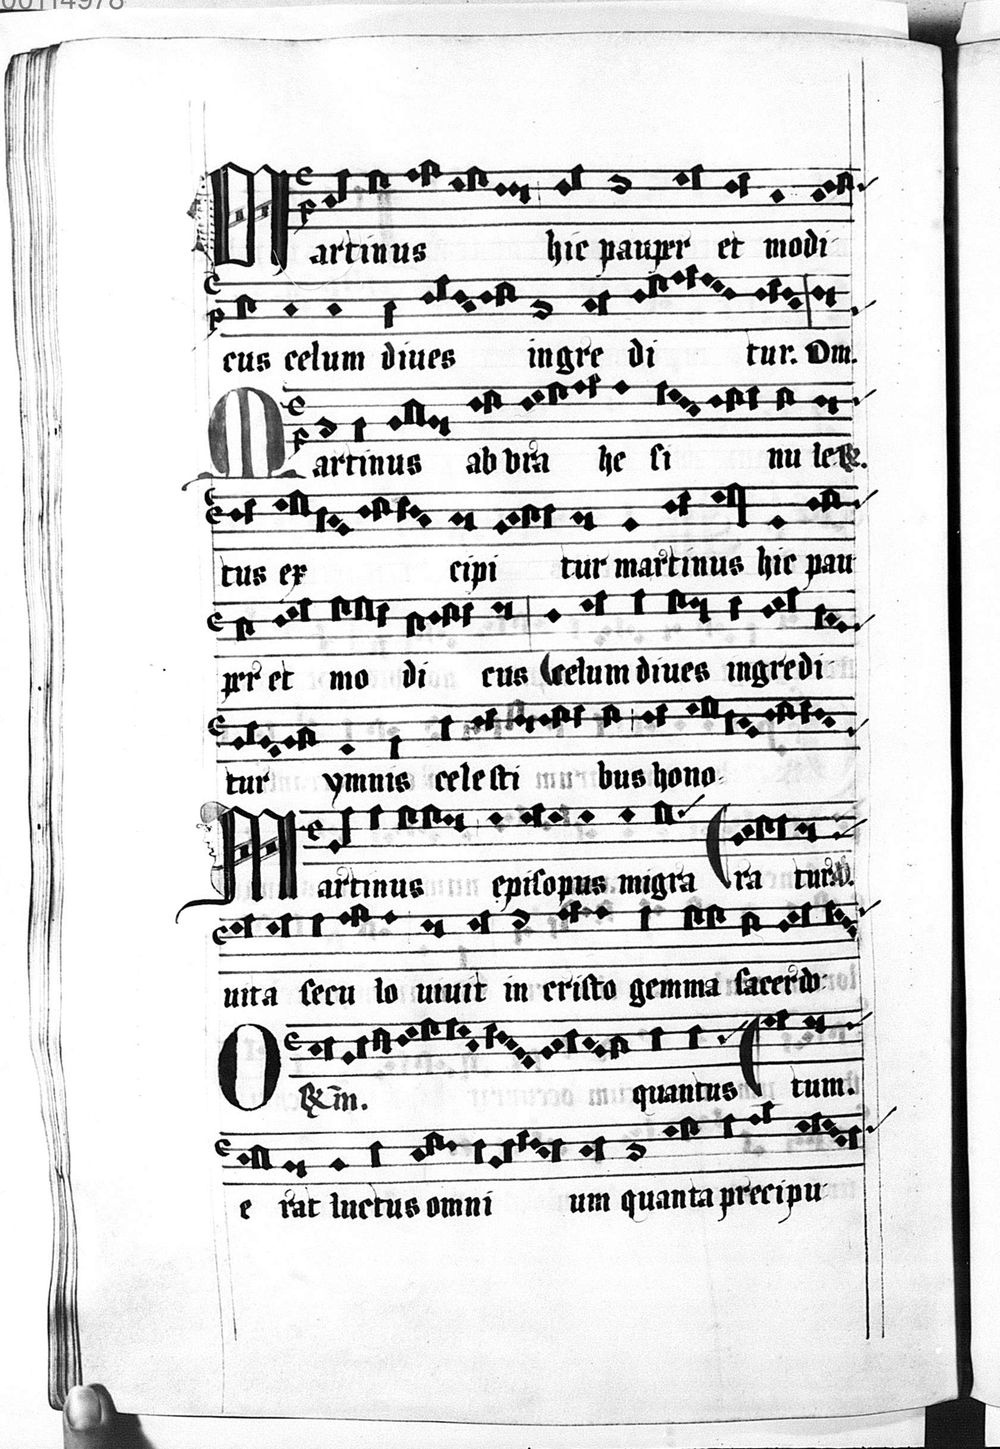 00114978
Martinus hic pauper et modi
cus celum diues ingre di tur. Om.
Martinus ab vra he si nu le
tus ex cipi tur martinus hic pau
per et mo di cus celum diues ingredi
tur ymnis celesti bus hono
Martinus episopus migra ra tur
uita secu lo uiuit in cristo gemma sacerdo
O quantus tum.
e rat luctus omni um quanta precipu